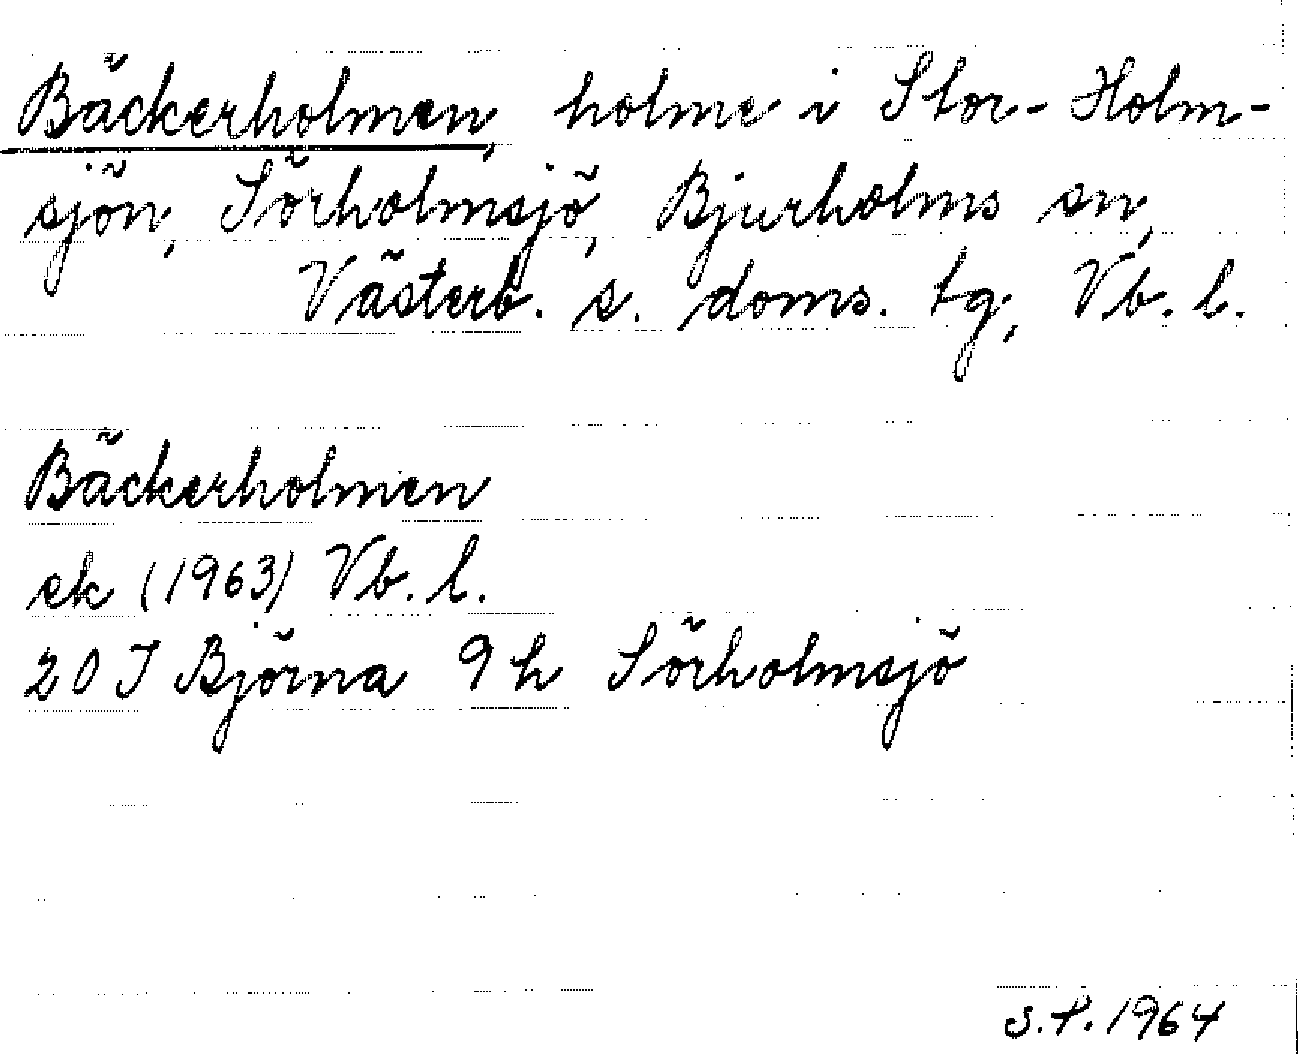 Bäckerholmen, holme i Stor-Holm-
sjön, Sörholmsjö, Bjurholms sn,
Västerb. s. doms. tg, Vb. l.
Bäckerholmen
ek (1963) Vb. l.
20 J Björna 9 h Sörholmsjö
S.P. 1964